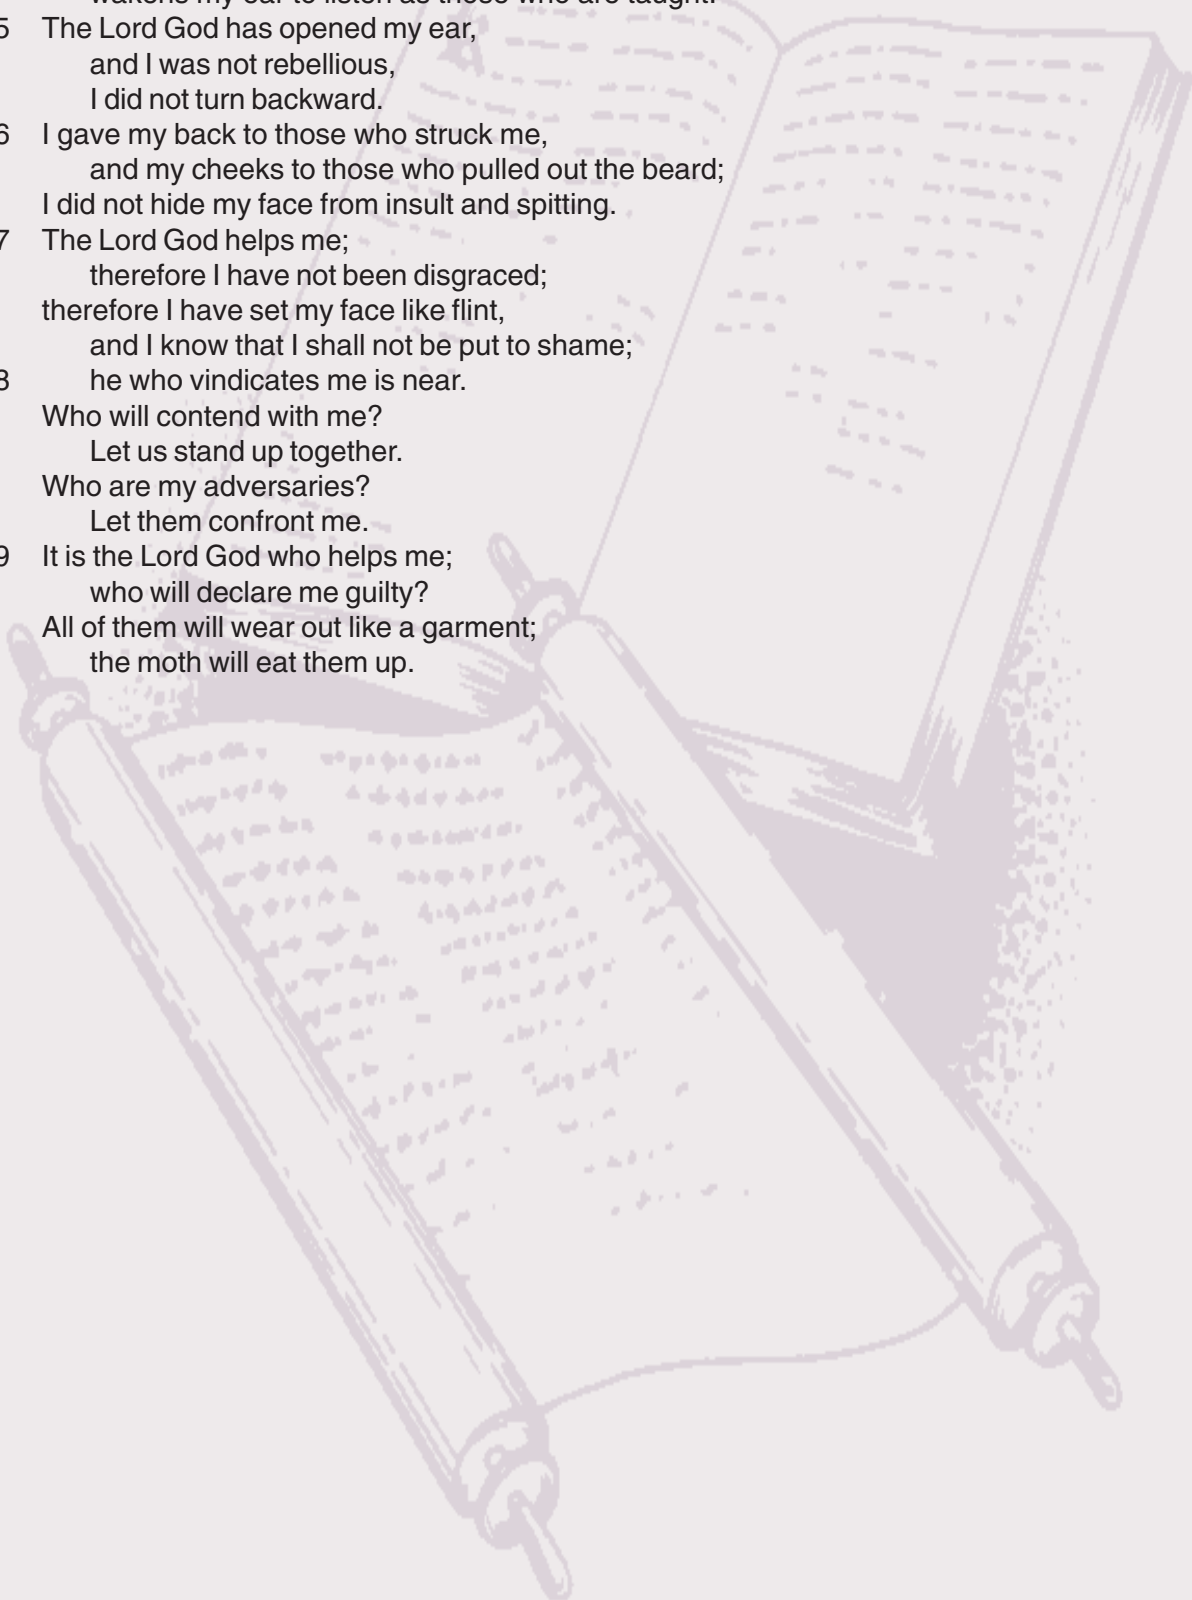 wakens my ear to listen as those who are taught.
5 The Lord God has opened my ear,
and I was not rebellious,
I did not turn backward.
6 I gave my back to those who struck me,
and my cheeks to those who pulled out the beard;
I did not hide my face from insult and spitting.
7 The Lord God helps me;
therefore I have not been disgraced;
therefore I have set my face like flint,
and I know that I shall not be put to shame;
8 he who vindicates me is near.
Who will contend with me?
Let us stand up together.
Who are my adversaries?
Let them confront me.
9 It is the Lord God who helps me;
who will declare me guilty?
All of them will wear out like a garment;
the moth will eat them up.